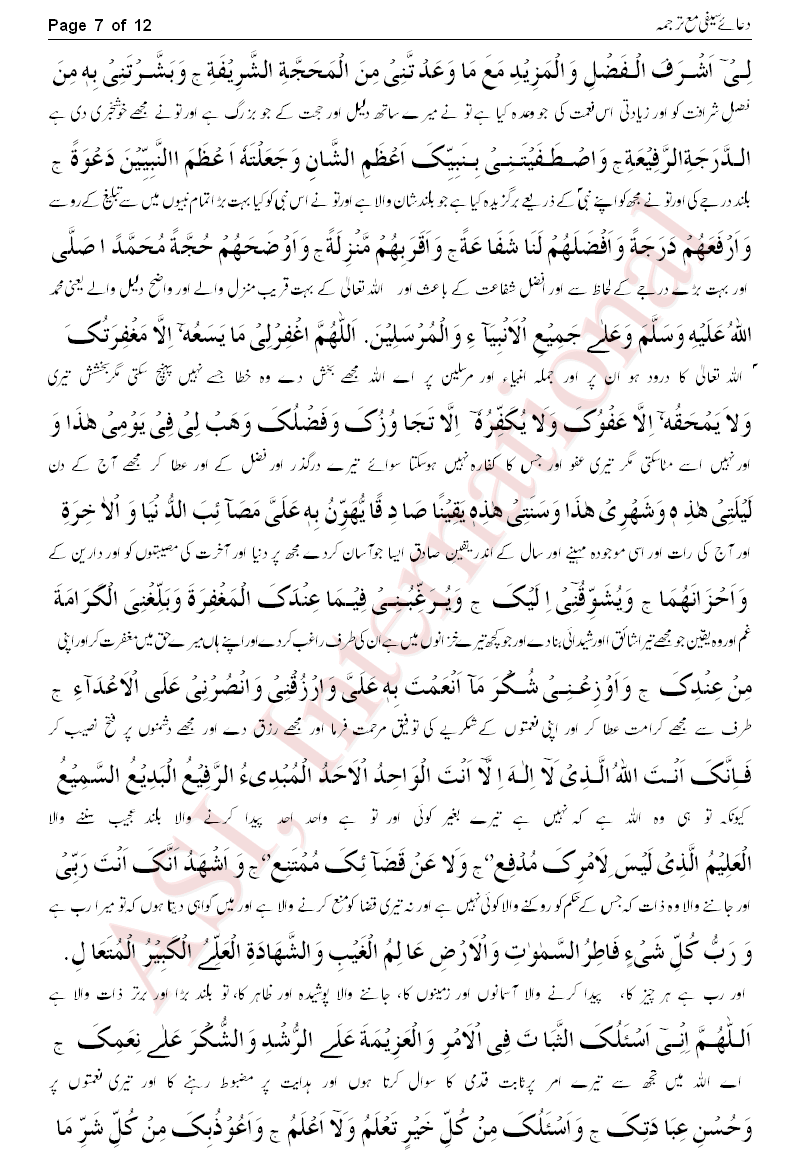 Page 7 of 12
دعائے سیفی مع ترجمہ
لِیْۤ اَشْرَفَ الْفَضْلِ وَالْمَزِیْدِ مَعَ مَا وَعَدْتَّنِیْ مِنَ الْمَحَجَّةِ الشَّرِیْفَةِ ج وَبَشَّرْتَنِیْ بِهٖ مِنَ
فضلِ شرافت کو اور زیادتی اس نعمت کی جو وعدہ کیا ہے تو نے میرے ساتھ دلیل اور حجت کے جو بزرگ ہے اور تو نے مجھے خوشخبری دی ہے
الدَّرَجَةِ الرَّفِیْعَةِ ج وَاصْطَفَیْتَنِیْ بِنَبِیِّکَ اَعْظَمِ الشَّانِ وَجَعَلْتَهٗ اَعْظَمَ االنَّبِیِّیْنَ دَعْوَةً ج
بلند درجے کی اور تو نے مجھ کو اپنے نبیؐ کے ذریعے برگزیدہ کیا ہے جو بلند شان والا ہے اور تو نے اس نبی کو کیا بہت بڑا تمام نبیوں میں سے تبلیغ کے رو سے
وَاَرْفَعَهُمْ دَرَجَةً وَاَفْضَلَهُمْ لَنَا شَفَاعَةً ج وَاَقْرَبِهُمْ مَّنْزِلَةً ج وَاَوْضَحَهُمْ حُجَّةً مُحَمَّدً ا صَلَّی
اور بہت بڑے درجے کے لحاظ سے اور افضل شفاعت کے باعث اور اللہ تعالیٰ کے بہت قریب منزل والے اور واضح دلیل والے یعنی محمد
اللهُ عَلَیْهِ وَسَلَّمَ وَعَلٰے جَمِیْعِ الْاَنْبِیَآءِ وَالْمُرْسَلِیْنَ. اَللّٰهُمَّ اغْفِرْلِیْ مَا یَسَعُهٗۤ اِلَّا مَغْفِرَتُکَ
اللہ تعالیٰ کا درود ہو ان پر اور جملہ انبیاء اور مرسلین پر اے اللہ مجھے بخش دے وہ خطا جسے نہیں پہنچ سکتی مگر بخشش تیری
وَلَا یَمْحَقُهٗۤ اِلَّا عَفْوُکَ وَلَا یُکَفِّرُهٗۤ اِلَّا تَجَاوُزُکَ وَفَضْلُکَ وَهَبْ لِیْ فِیْ یَوْمِیْ هٰذَا وَ
اور نہیں اسے مٹا سکتی مگر تیری عفو اور جس کا کفارہ نہیں ہوسکتا سوائے تیرے درگذر اور فضل کے اور عطا کر مجھے آج کے دن
لَیْلَتِیْ هٰذِهٖ وَشَهْرِیْ هٰذَا وَسَنَتِیْ هٰذِهٖ یَقِیْنًا صَادِقًا یُّهَوِّنُ بِهٖ عَلَیَّ مَصَآئِبَ الدُّنْیَا وَ الْاٰخِرَةِ
اور آج کی رات اور اسی موجودہ مہینے اور سال کے اندر یقین صادق ایسا جو آسان کردے مجھ پر دنیا اور آخرت کی مصیبتوں کو اور دارین کے
وَاَحْزَانَهُمَا ج وَیُشَوِّقُنِیْۤ اِلَیْکَ ج وَیُرَغِّبُنِیْ فِیْمَا عِنْدَکَ الْمَغْفِرَةَ وَبَلِّغْنِیْ الْکَرَامَةَ
غم اور وہ یقین جو مجھے تیرا شائق ااور شیدائی بنا دے اور جو کچھ تیرے خزانوں میں ہے ان کی طرف راغب کردے اور اپنے ہاں میرے حق میں مغفرت کر اور اپنی
مِنْ عِنْدِکَ ج وَاَوْزِعْنِیْ شُکْرَ مَآ اَنْعَمْتَ بِهٖ عَلَیَّ وَارْزُقْنِیْ وَانْصُرْنِیْ عَلَی الْاَعْدَآءِ ج
طرف سے مجھے کرامت عطا کر اور اپنی نعمتوں کے شکریے کی توفیق مرحمت فرما اور مجھے رزق دے اور مجھے دشمنوں پر فتح نصیب کر
فَاِنَّکَ اَنْتَ اللهُ الَّذِیْ لَآ اِلٰهَ اِلَّا اَنْتَ الْوَاحِدُ الْاَحَدُ الْمُبْدِیُٔ الرَّفِیْعُ الْبَدِیْعُ السَّمِیْعُ
کیونکہ تو ہی وہ اللہ ہے کہ نہیں ہے تیرے بغیر کوئی اور تو ہے واحد احد پیدا کرنے والا بلند عجیب سننے والا
الْعَلِیْمُ الَّذِیْ لَیْسَ لِاَمْرِکَ مُدْفِع'' ج وَلَا عَنْ قَضَآئِکَ مُمْتَنِع'' ج وَ اَشْهَدُ اَنَّکَ اَنْتَ رَبِّیْ
اور جاننے والا وہ ذات کہ جس کے حکم کو روکنے والا کوئی نہیں ہے اور نہ تیری قضا کو منع کرنے والا ہے اور میں گواہی دیتا ہوں کہ تو میرا رب ہے
وَ رَبُّ کُلِّ شَیْءٍ فَاطِرُ السَّمٰوٰتِ وَالْاَرْضِ عَالِمُ الْغَیْبِ وَالشَّهَادَةِ الْعَلِیُّ الْکَبِیْرُ الْمُتَعَالِ.
اور رب ہے ہر چیز کا، پیدا کرنے والا آسانوں اور زمینوں کا، جاننے والا پوشیدہ اور ظاہر کا، تو بلند بڑا اور برتر ذات والا ہے
اَللّٰهُمَّ اِنِّیْۤ اَسْئَلُکَ الثَّبَاتَ فِی الْاَمْرِ وَالْعَزِیْمَةَ عَلَے الرُّشْدِ وَالشُّکْرَ عَلٰے نِعَمِکَ ج
اے اللہ میں تجھ سے تیرے امر پر ثابت قدمی کا سوال کرتا ہوں اور ہدایت پر مضبوط رہنے کا اور تیری نعمتوں پر
وَحُسْنِ عِبَادَتِکَ ج وَاَسْئَلُکَ مِنْ کُلِّ خَیْرٍ تَعْلَمُ وَلَآ اَعْلَمُ ج وَاَعُوْذُبِکَ مِنْ کُلِّ شَرِّ مَا
ASI, International